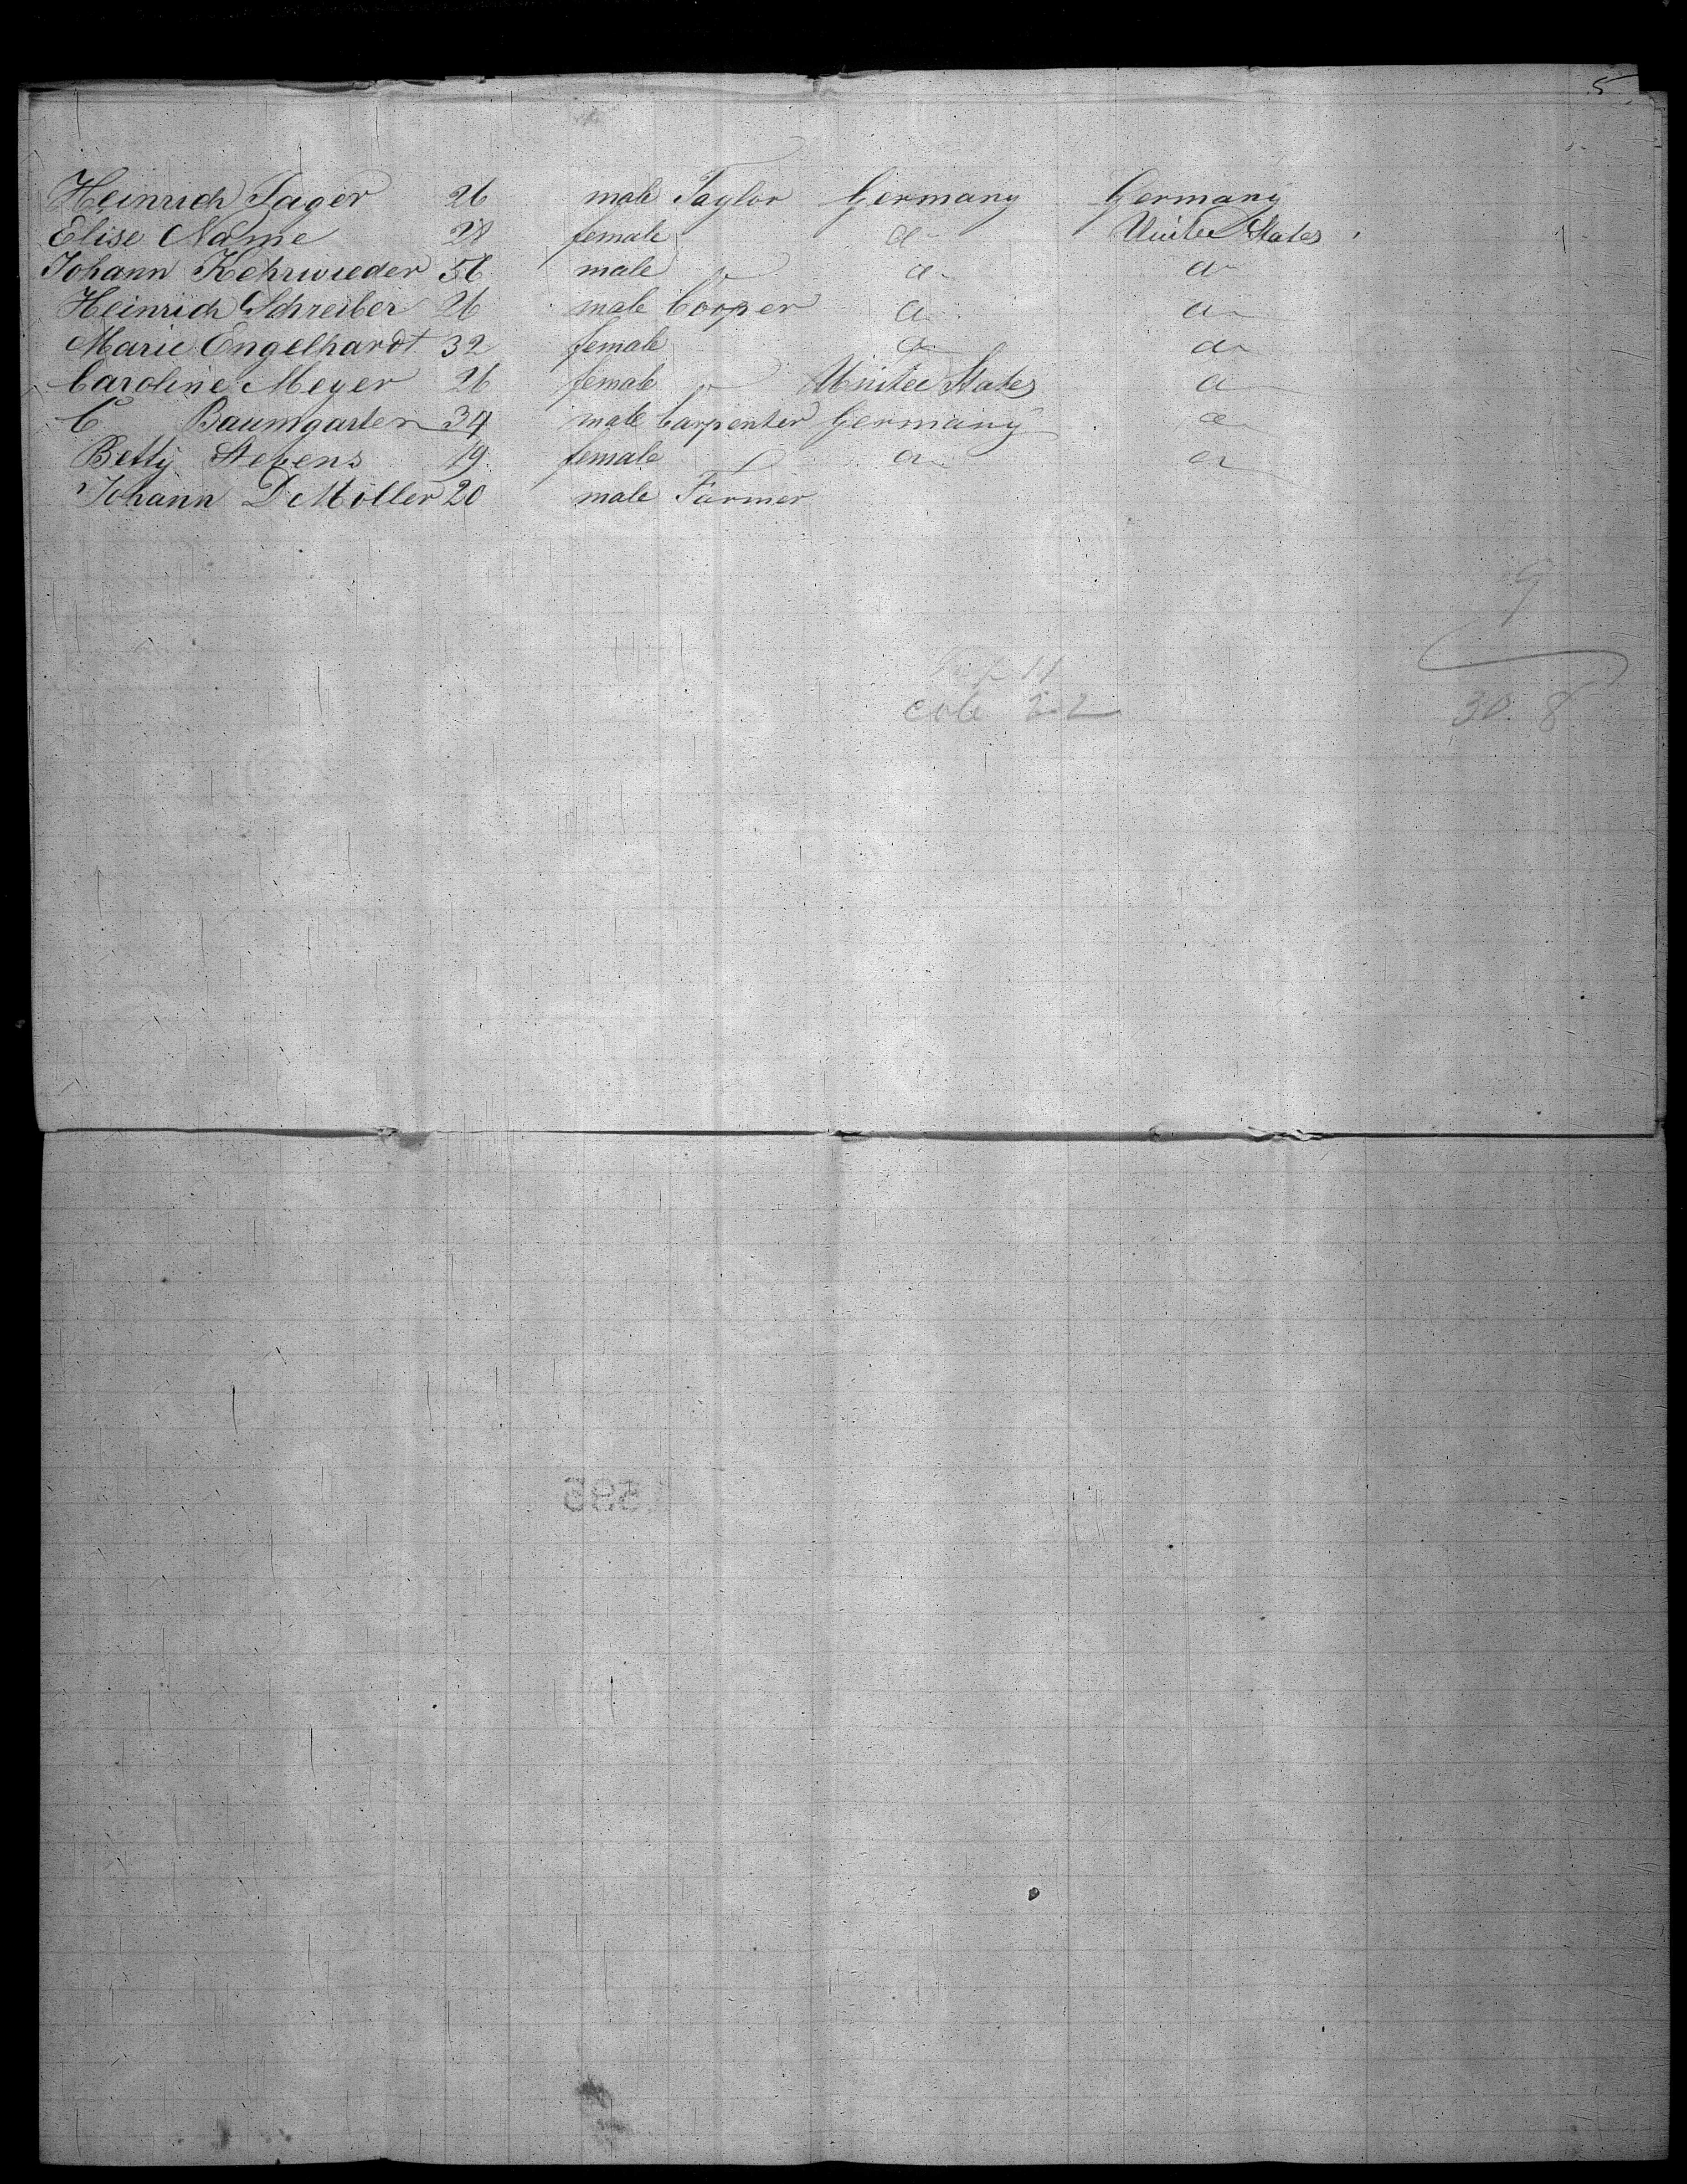 5
Heinrich Jager 26 male Taylor Germany Germany
Elise Name 28 female a United States
Johann Kehrwieder 56 male a a
Heinrich Schreiber 26 male Cooper a a
Marie Engelhardt 32 female a a
Caroline Meyer 26 female United States a
C Baumgarten 34 male Carpenter Germany a
Betty Stevens 19 female a a
Johann D Möller 20 male Farmer
9
30 8